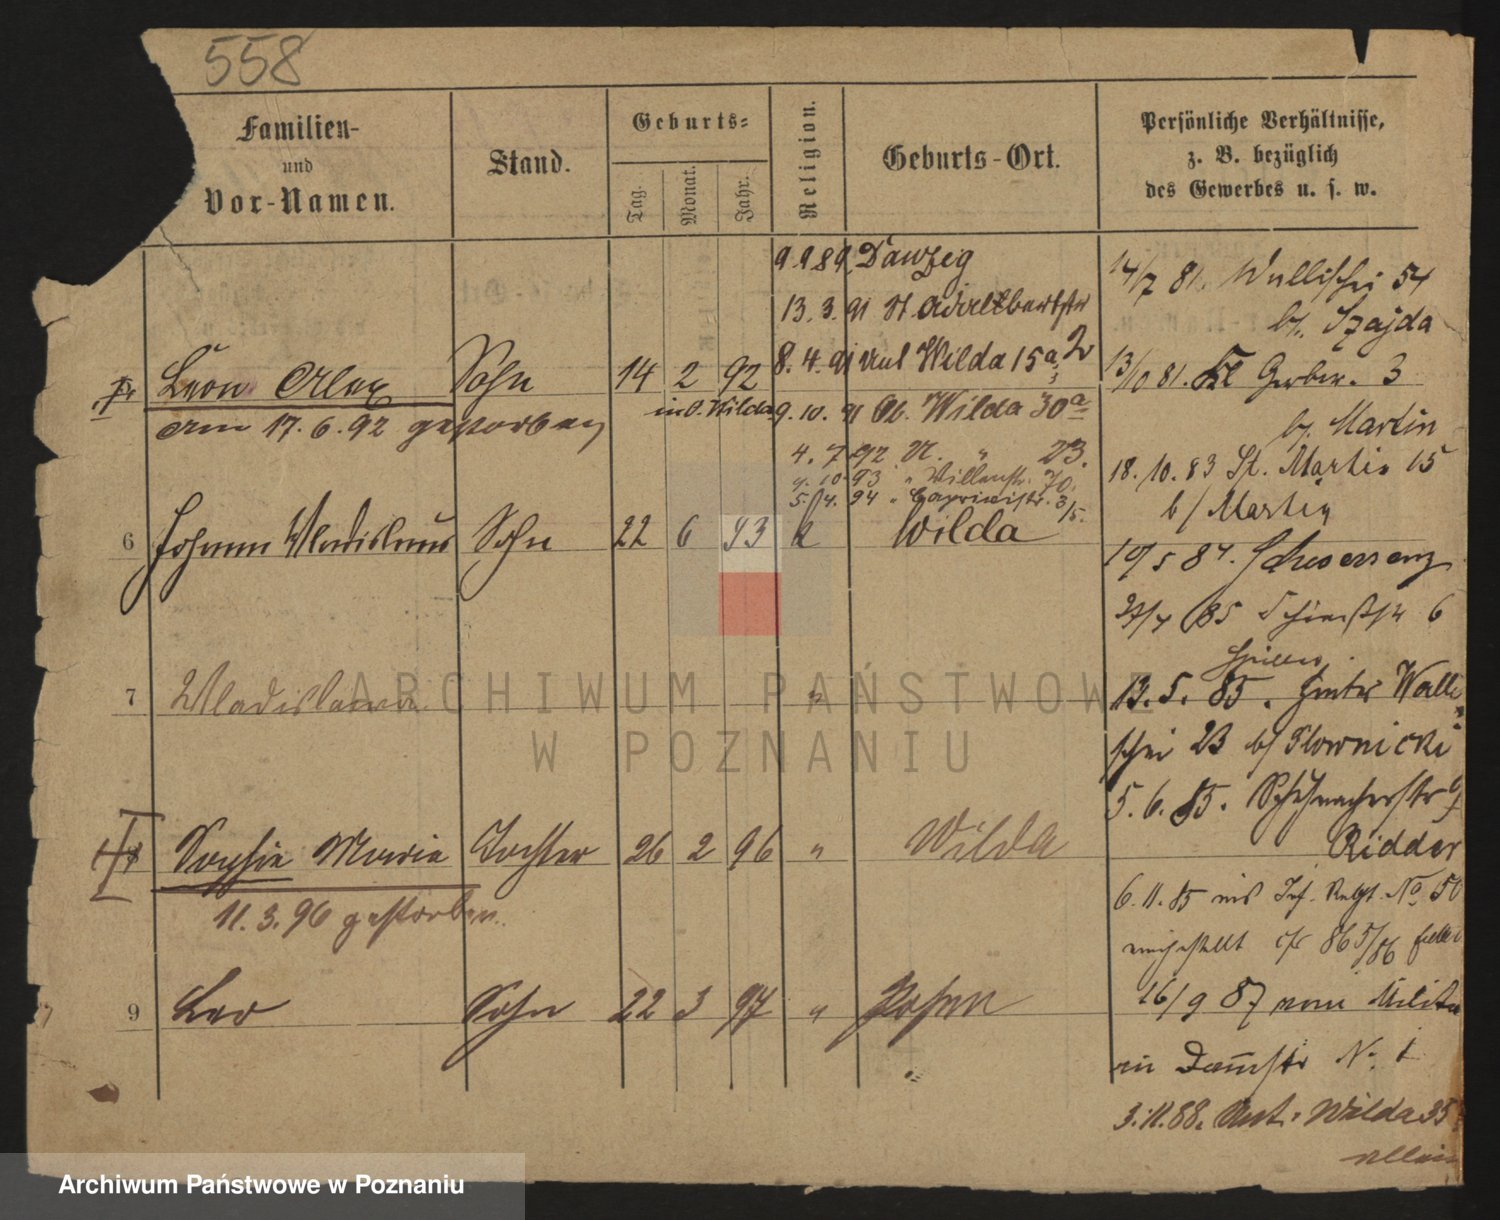 558
Familien-
und
Vor-Namen.
Stand.
Geburts-
Tag.
Monat.
Jahr.
Religion.
Geburts-Ort.
Persönliche Verhältnisse,
z. B. bezüglich
des Gewerbes u. s. w.
9.9 89 Danzig
13. 3. 91 St. Adalbertstr
8. 4. 91 Unt Wilda 15a
Leon Alex Sohn 14 2 92
in O. Wilda
am 17. 6. 92 gestorben
9. 10. 91 Ob. Wilda 30a
4. 7 92 U. " 23.
9. 10 93 "
5. 4. 94 " Caprivistr.
6 Johann Wladislaus Sohn 22 6 93 k Wilda
7 Wladislawa "
Sophie Marie Tochter 26 2 96 " Wilda
11. 3. 96 gestorben.
9 Leo Sohn 22 3 97 " Posen
14/7 81. Wallischei 54
b/. Szajda
13/10 81. Kl Gerber. 3
b/. Martin
18. 10. 83 St. Martin 15
b/ Martin
19/5 84. Schwersenz
85 6
13. 5. 85. Hinter Walli
schei 23 b/
5. 6. 85. Schuhmacherstr 9
Ridder
6. 11. 85 ins Inf. Regt. No 50
eingestellt cfr 865/86
16/9 87 vom Militär
in Dammstr No 1
3. 11. 88. Unt. Wilda 35
allein
ARCHIWUM PAŃSTWOWE
W POZNANIU
Archiwum Państwowe w Poznaniu